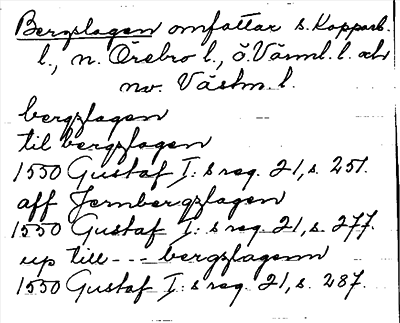 Bergslagen omfattar s. Kopparb.
l., n. Örebro l., ö. Värml. l. och
nv. Västm. l.
bergslagen
til bergslagen
1550 Gustaf I:s reg. 21, s. 251.
aff Jernbergslagen
1550 Gustaf I:s reg. 21, s. 277.
up till --- bergslagenn
1550 Gustaf I:s reg. 21, s. 287.